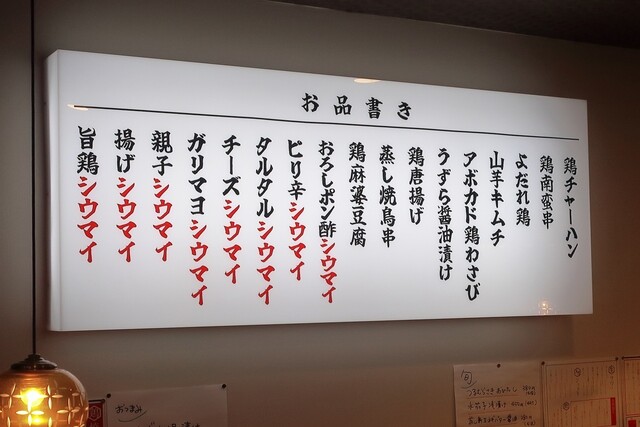 お品書き
鶏チャーハン
鶏南蛮串
よだれ鶏
山芋キムチ
アボカド鶏わさび
うずら醤油漬け
鶏唐揚げ
蒸し焼鳥串
鶏麻婆豆腐
おろしポン酢シウマイ
ピリ辛シウマイ
タルタルシウマイ
チーズシウマイ
ガリマヨシウマイ
親子シウマイ
揚げシウマイ
旨鶏シウマイ
おつまみ
旬